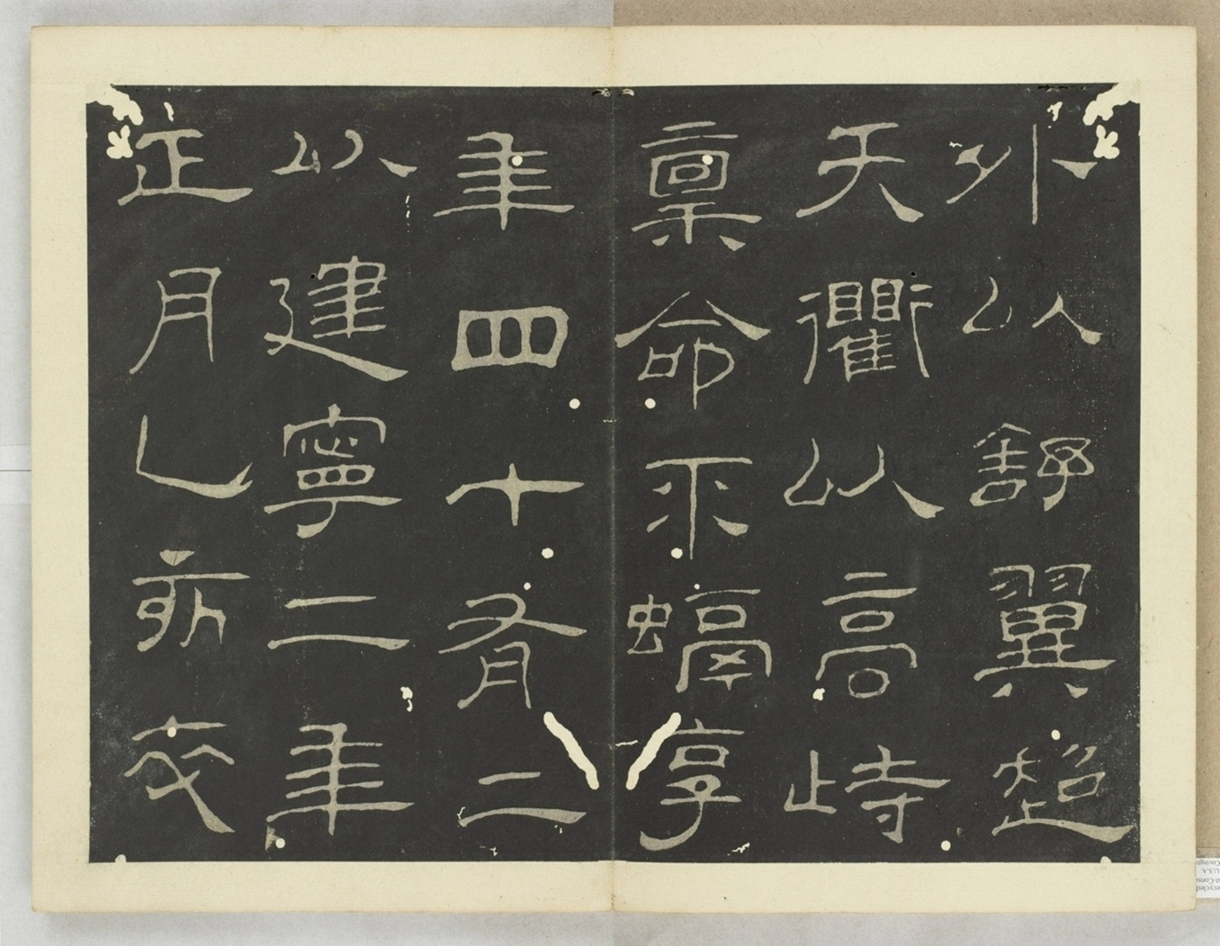 外以舒翼超
天衢以高峙
稟命不螎享
年四十有二
以建寧二年
正月乙亥卒